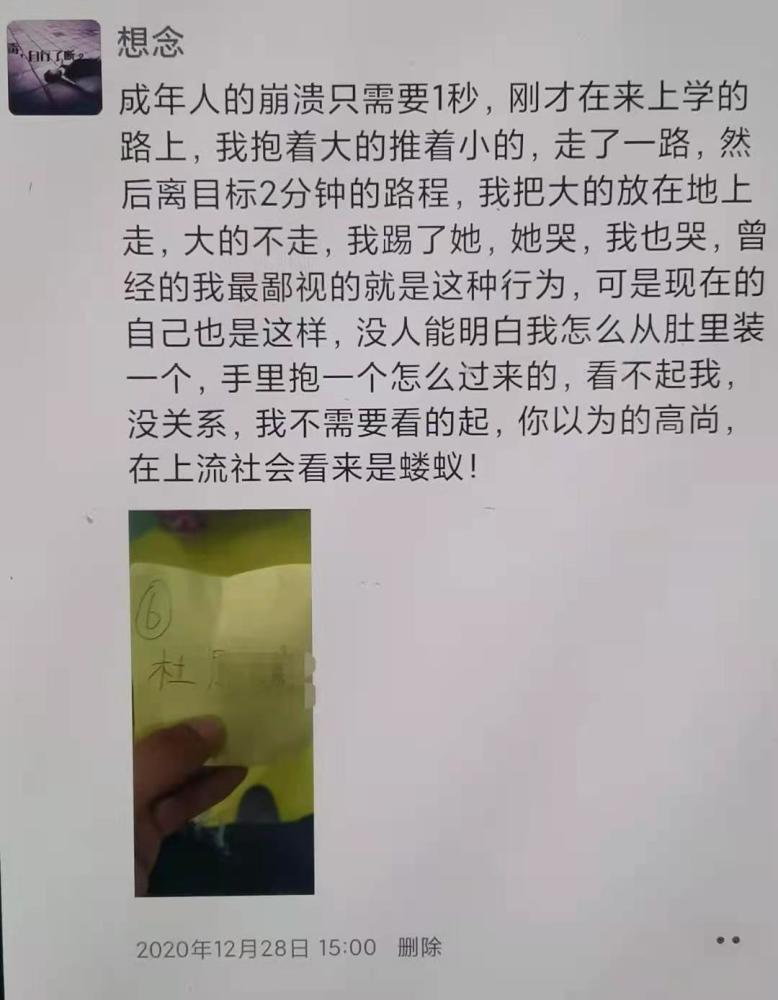 自行了断?
想念
成年人的崩溃只需要1秒，刚才在来上学的
路上，我抱着大的推着小的，走了一路，然
后离目标2分钟的路程，我把大的放在地上
走，大的不走，我踢了她，她哭，我也哭，曾
经的我最鄙视的就是这种行为，可是现在的
自己也是这样，没人能明白我怎么从肚里装
一个，手里抱一个怎么过来的，看不起我，
没关系，我不需要看的起，你以为的高尚，
在上流社会看来是蝼蚁！
⑥
杜
2020年12月28日 15:00 删除